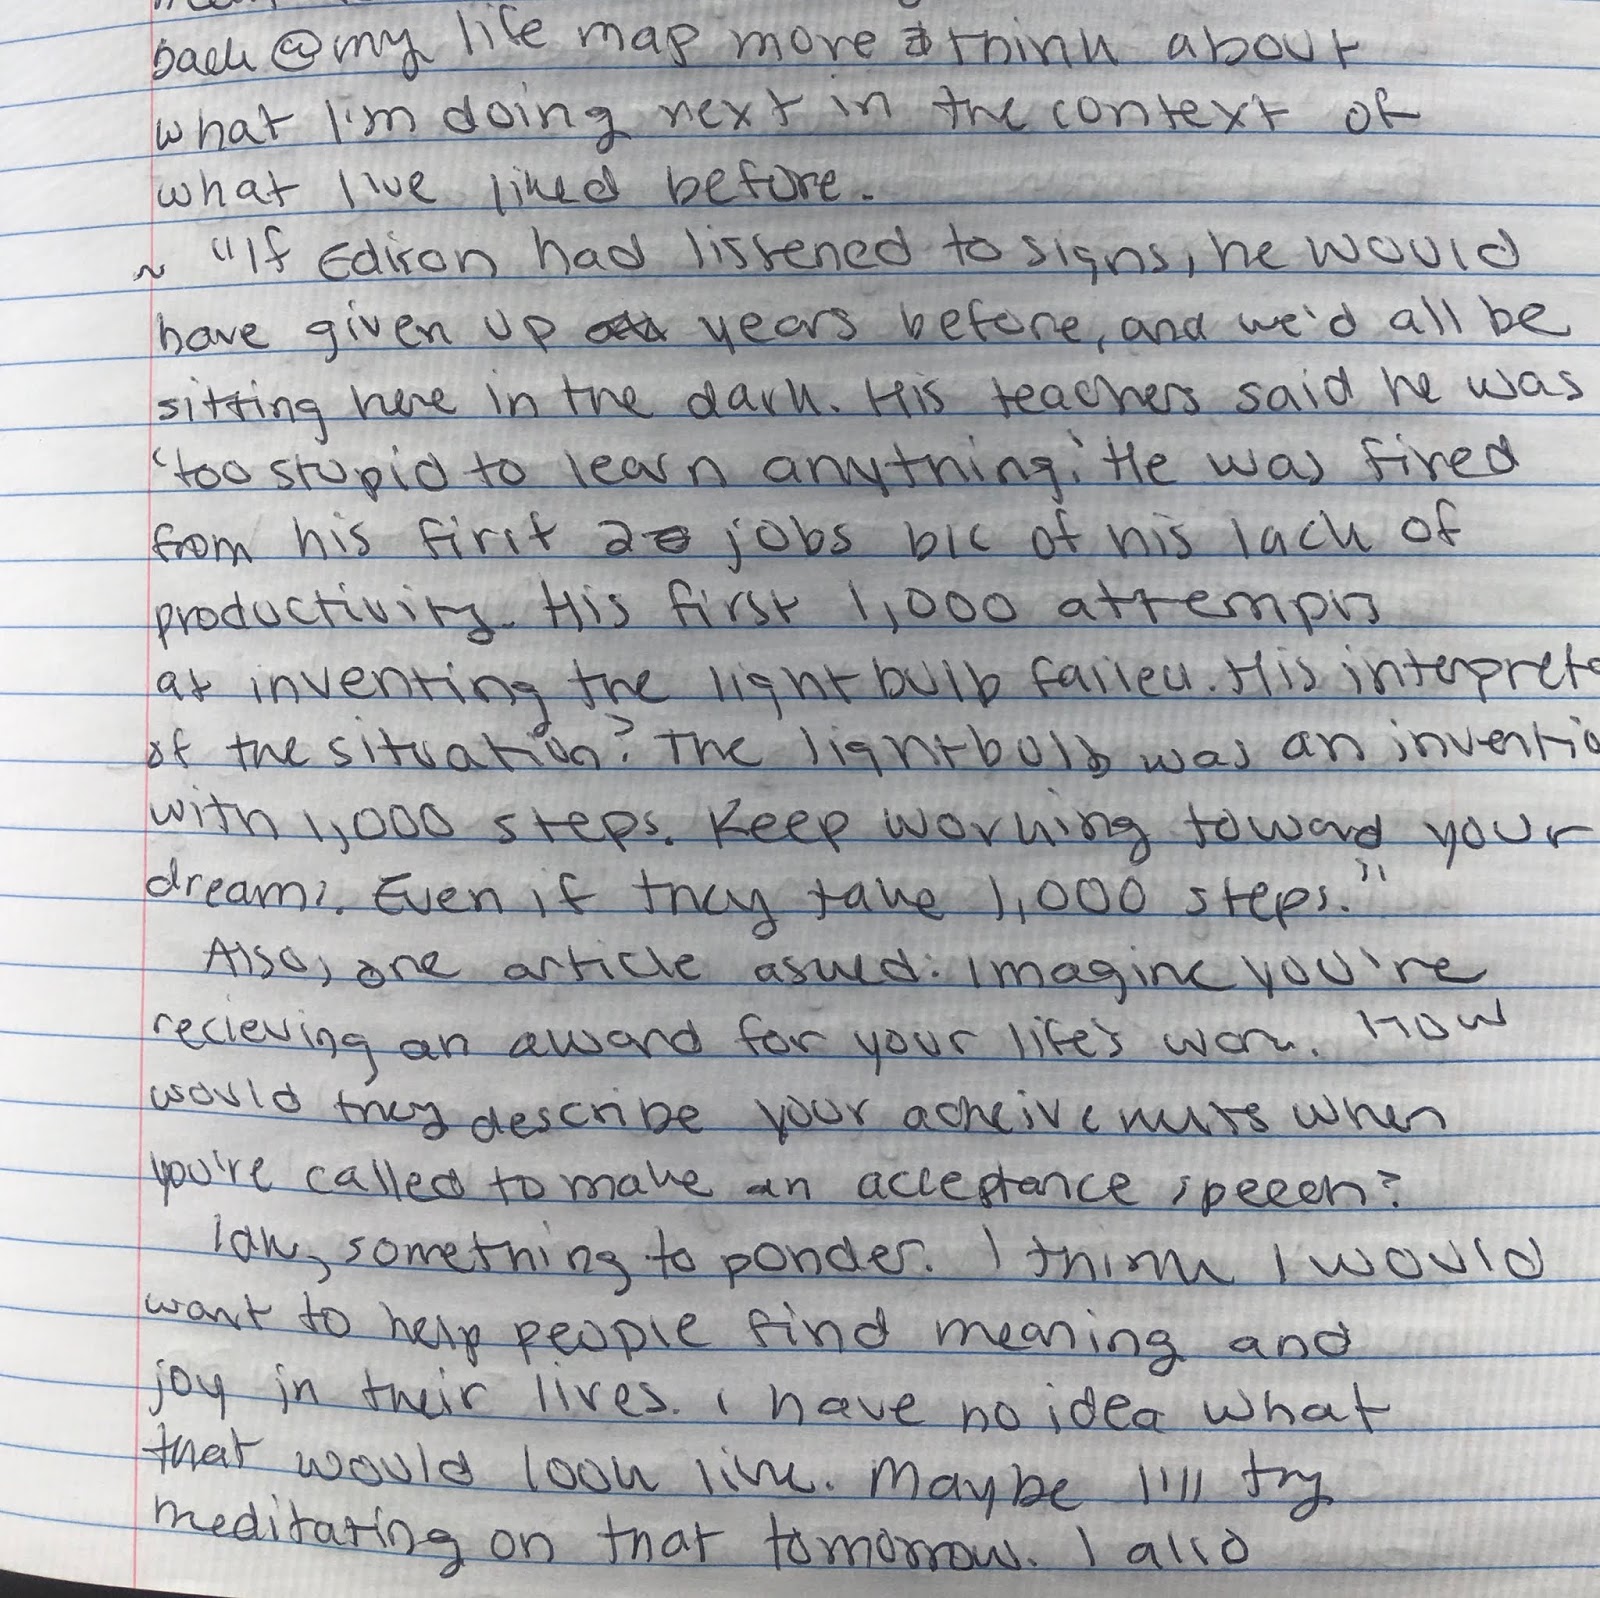 back @ my life map more & think about
what I'm doing next in the context of
what I've liked before.
~ "If Edison had listened to signs, he would
have given up years before, and we'd all be
sitting here in the dark. His teachers said he was
'too stupid to learn anything.' He was fired
from his first 2 jobs b/c of his lack of
productivity. His first 1,000 attempts
at inventing the lightbulb failed. His interpret
of the situation? The lightbulb was an inventio
with 1,000 steps. Keep working toward your
dreams. Even if they take 1,000 steps."
Also, one article asked: Imagine you're
recieving an award for your life's work. How
would they describe your acheivements when
you're called to make an acceptance speech?
Idk, something to ponder. I think I would
want to help people find meaning and
joy in their lives. I have no idea what
that would look like. Maybe I'll try
meditating on that tomorrow. I also